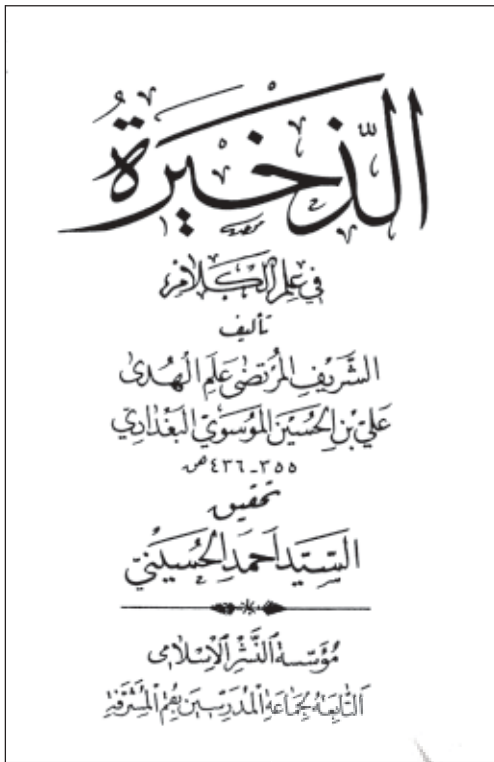 الذّخيرةُ
في علم الكلام
تأليف
الشريف المرتضى علم الهدى
علي بن الحسين الموسوي البغدادي
٣٥٥ - ٤٣٦ هـ
تحقيق
السيد أحمد الحسيني
مؤسسة النشر الإسلامي
التابعة لجماعة المدرسين بقم المشرفة